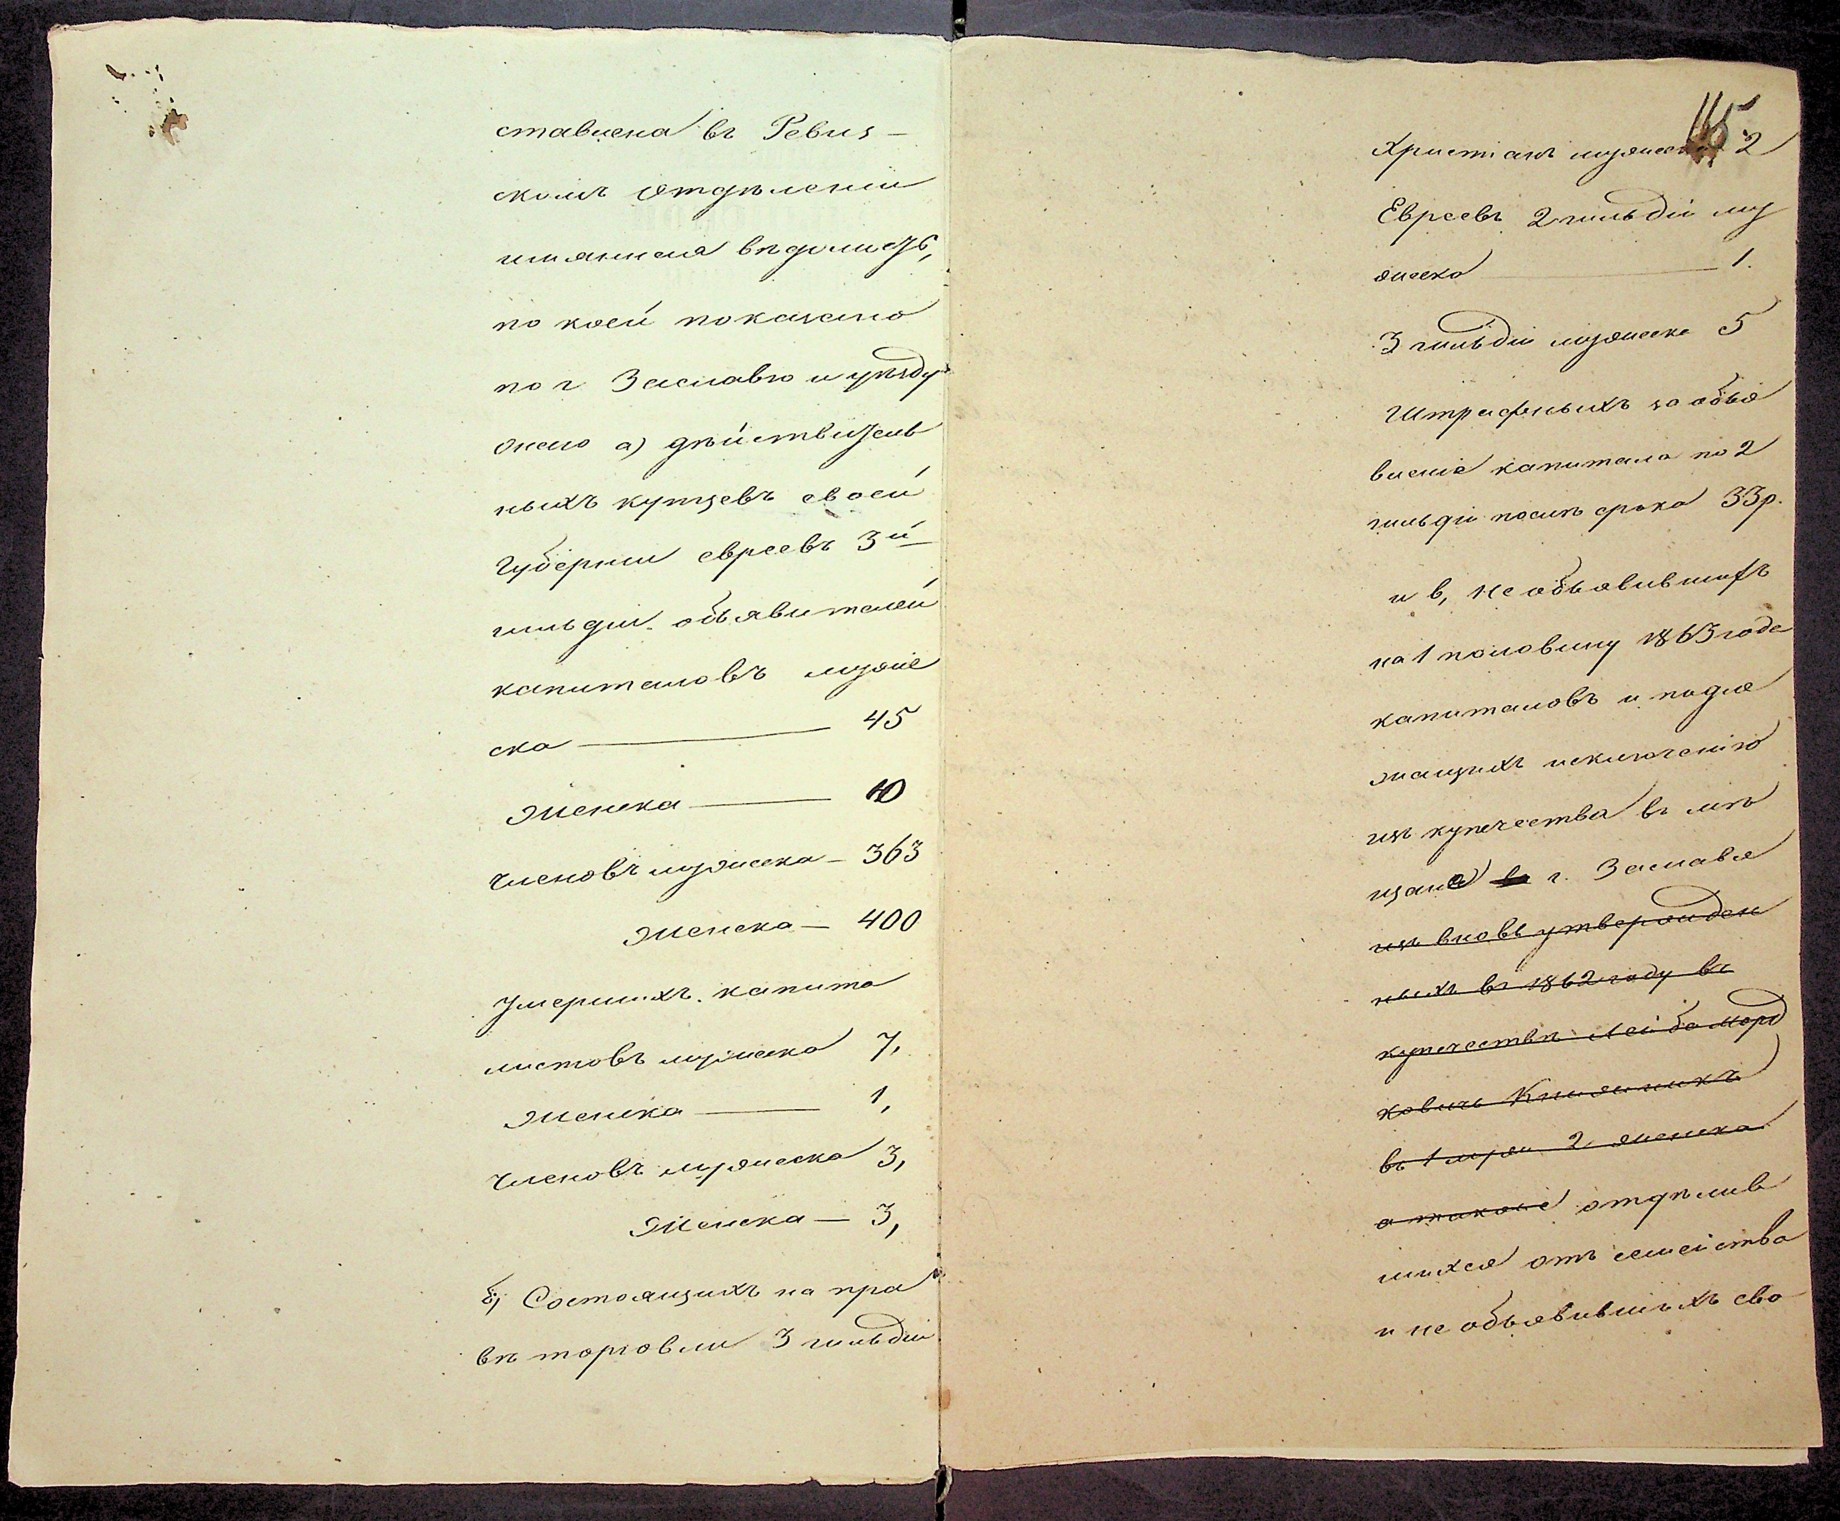 ставлена въ Ревиз-
скомъ Отдѣленіи
имянная вѣдомость,
по коей показано
по г. Заславю и уѣзду
онаго а) дѣйствитель
ныхъ купцевъ своей
Губерніи евреевъ 3й
гильдіи объявителей
капиталовъ мужес
ска — 45
женска — 10
Членовъ мужеска — 363
женска — 400
Умершихъ капита
листовъ мужеска 7,
женска — 1,
Членовъ мужеска 3,
женска — 3,
б, Состоящихъ на пра
вѣ торговли 3 гильдіи
115
Христіанъ мужеска 2
Евреевъ 2 гильдіи му
жеска — 1.
3 гильдіи мужеска 5
Штрафныхъ за объя
вленіе капитала по 2
гильдіи послѣ срока 33р.
и в, не объявившихъ
на 1 половину 1863 года
капиталовъ и подле
жащихъ исключенію
изъ купечества въ мѣ
щане г. Заславля
изъ вновь утвержден
ныхъ въ 1862 году въ
купечествѣ Лейба Морд
ковичъ Книжникъ
въ 1 муж 2 женска
а также отдѣлив
шихся отъ семейства
и не объявившихъ сво